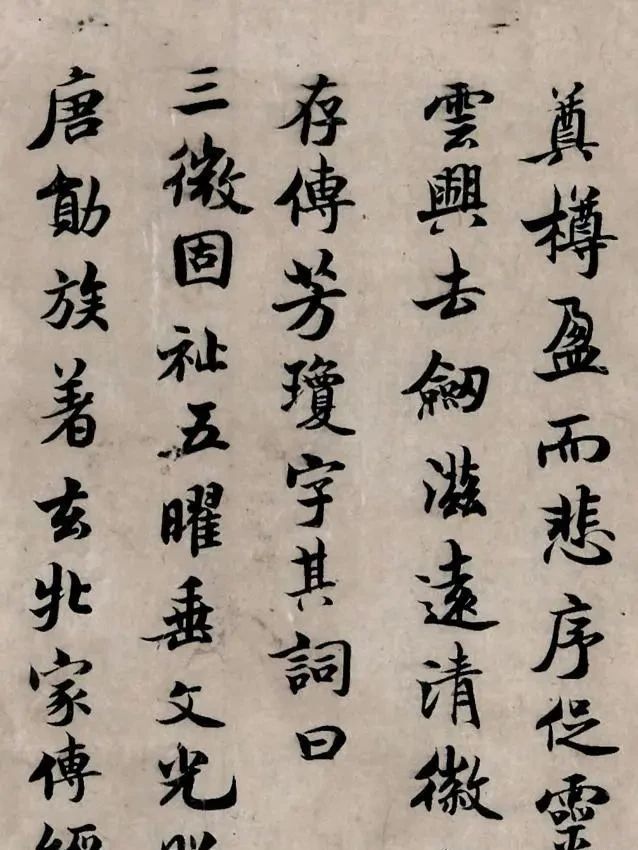 奠樽盈而悲序促靈
雲興去劒滋遠清徽
存傳芳瓊字其詞曰
三微固祉五曜垂文光
唐勛族著玄牝家傳經